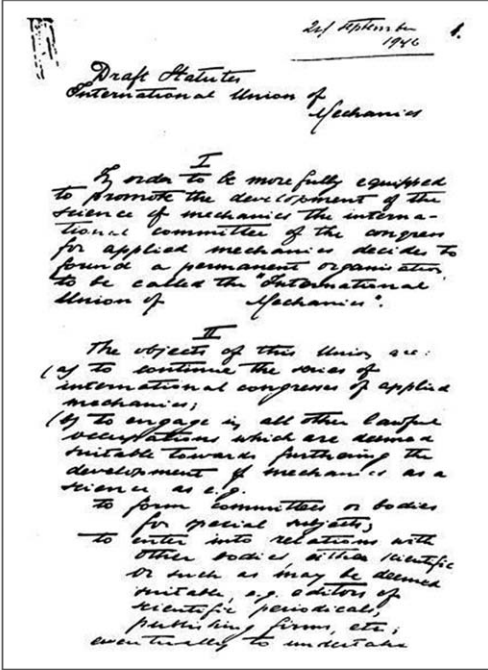 24 September 1.
1946
Draft Statutes
International Union of
Mechanics
I
In order to be more fully equipped
to promote the development of the
science of mechanics the interna-
tional committee of the congress
for applied mechanics decides to
found a permanent organisation,
to be called the "International
Union of Mechanics".
II
The objects of this Union are:
(a) to continue the series of
international congresses of applied
mechanics;
(b) to engage in all other lawful
occupations which are deemed
suitable towards furthering the
development of mechanics as a
science as e.g.
to form committees or bodies
for special subjects;
to enter into relations with
other bodies either scientific
or such as may be deemed
suitable, e.g. editors of
scientific periodicals,
publishing firms, etc;
eventually to undertake